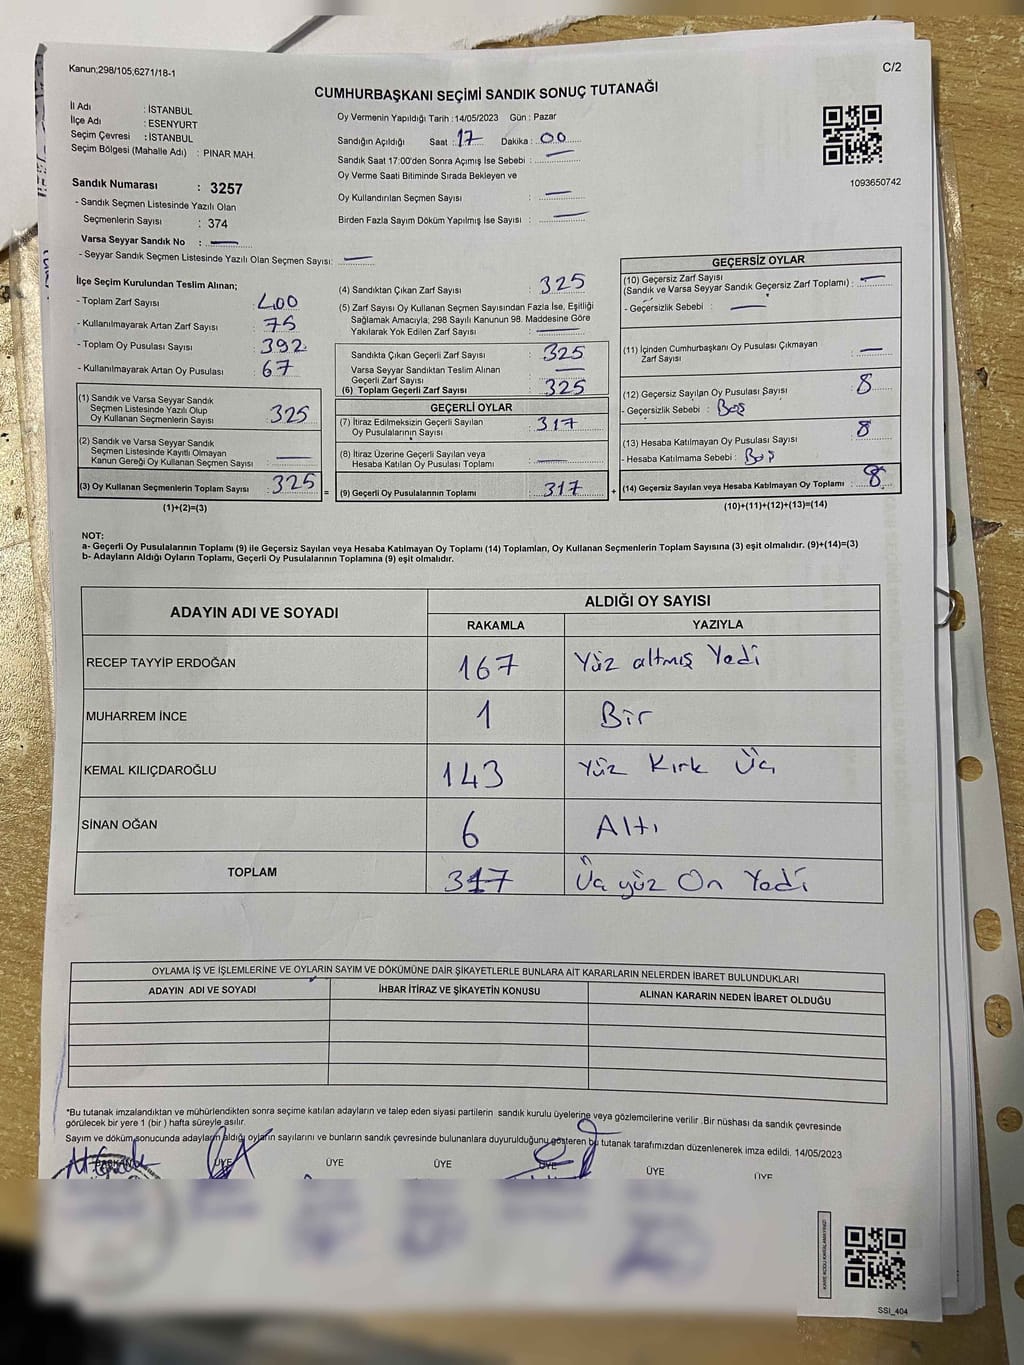 Kanun;298/105,6271/18-1
C/2
CUMHURBAŞKANI SEÇİMİ SANDIK SONUÇ TUTANAĞI
İl Adı : İSTANBUL
İlçe Adı : ESENYURT
Seçim Çevresi : İSTANBUL
Seçim Bölgesi (Mahalle Adı) : PINAR MAH.
Oy Vermenin Yapıldığı Tarih : 14/05/2023 Gün : Pazar
Sandığın Açıldığı Saat : 17 Dakika : 00
Sandık Saat 17:00'den Sonra Açımış İse Sebebi : —
Oy Verme Saati Bitiminde Sırada Bekleyen ve
Oy Kullandırılan Seçmen Sayısı : —
Birden Fazla Sayım Döküm Yapılmış İse Sayısı : —
1093650742
Sandık Numarası : 3257
- Sandık Seçmen Listesinde Yazılı Olan
Seçmenlerin Sayısı : 374
Varsa Seyyar Sandık No : —
- Seyyar Sandık Seçmen Listesinde Yazılı Olan Seçmen Sayısı: —
İlçe Seçim Kurulundan Teslim Alınan;
- Toplam Zarf Sayısı : 400
- Kullanılmayarak Artan Zarf Sayısı : 75
- Toplam Oy Pusulası Sayısı : 392
- Kullanılmayarak Artan Oy Pusulası : 67
(1) Sandık ve Varsa Seyyar Sandık
Seçmen Listesinde Yazılı Olup
Oy Kullanan Seçmenlerin Sayısı : 325
(2) Sandık ve Varsa Seyyar Sandık
Seçmen Listesinde Kayıtlı Olmayan
Kanun Gereği Oy Kullanan Seçmen Sayısı : —
(3) Oy Kullanan Seçmenlerin Toplam Sayısı : 325 =
(1)+(2)=(3)
(4) Sandıktan Çıkan Zarf Sayısı : 325
(5) Zarf Sayısı Oy Kullanan Seçmen Sayısından Fazla İse, Eşitliği
Sağlamak Amacıyla; 298 Sayılı Kanunun 98. Maddesine Göre
Yakılarak Yok Edilen Zarf Sayısı : —
Sandıkta Çıkan Geçerli Zarf Sayısı : 325
Varsa Seyyar Sandıktan Teslim Alınan
Geçerli Zarf Sayısı : —
(6) Toplam Geçerli Zarf Sayısı : 325
GEÇERLİ OYLAR
(7) İtiraz Edilmeksizin Geçerli Sayılan
Oy Pusulalarının Sayısı : 317
(8) İtiraz Üzerine Geçerli Sayılan veya
Hesaba Katılan Oy Pusulası Toplamı : —
(9) Geçerli Oy Pusulalarının Toplamı : 317 +
GEÇERSİZ OYLAR
(10) Geçersiz Zarf Sayısı
(Sandık ve Varsa Seyyar Sandık Geçersiz Zarf Toplamı) : —
- Geçersizlik Sebebi : —
(11) İçinden Cumhurbaşkanı Oy Pusulası Çıkmayan
Zarf Sayısı : —
(12) Geçersiz Sayılan Oy Pusulası Sayısı : 8
- Geçersizlik Sebebi : Boş
(13) Hesaba Katılmayan Oy Pusulası Sayısı : 8
- Hesaba Katılmama Sebebi : Boş
(14) Geçersiz Sayılan veya Hesaba Katılmayan Oy Toplamı : 8
(10)+(11)+(12)+(13)=(14)
NOT:
a- Geçerli Oy Pusulalarının Toplamı (9) ile Geçersiz Sayılan veya Hesaba Katılmayan Oy Toplamı (14) Toplamları, Oy Kullanan Seçmenlerin Toplam Sayısına (3) eşit olmalıdır. (9)+(14)=(3)
b- Adayların Aldığı Oyların Toplamı, Geçerli Oy Pusulalarının Toplamına (9) eşit olmalıdır.
ADAYIN ADI VE SOYADI
ALDIĞI OY SAYISI
RAKAMLA YAZIYLA
RECEP TAYYİP ERDOĞAN 167 Yüz altmış Yedi
MUHARREM İNCE 1 Bir
KEMAL KILIÇDAROĞLU 143 Yüz Kırk Üç
SİNAN OĞAN 6 Altı
TOPLAM 317 Üç yüz On Yedi
OYLAMA İŞ VE İŞLEMLERİNE VE OYLARIN SAYIM VE DÖKÜMÜNE DAİR ŞİKAYETLERLE BUNLARA AİT KARARLARIN NELERDEN İBARET BULUNDUKLARI
ADAYIN ADI VE SOYADI İHBAR İTİRAZ VE ŞİKAYETİN KONUSU ALINAN KARARIN NEDEN İBARET OLDUĞU
*Bu tutanak imzalandıktan ve mühürlendikten sonra seçime katılan adayların ve talep eden siyasi partilerin sandık kurulu üyelerine veya gözlemcilerine verilir .Bir nüshası da sandık çevresinde
görülecek bir yere 1 (bir ) hafta süreyle asılır.
Sayım ve döküm sonucunda adayların aldığı oyların sayılarını ve bunların sandık çevresinde bulunanlara duyurulduğunu gösteren bu tutanak tarafımızdan düzenlenerek imza edildi. 14/05/2023
BAŞKAN ÜYE ÜYE ÜYE ÜYE ÜYE ÜYE
SSI_404